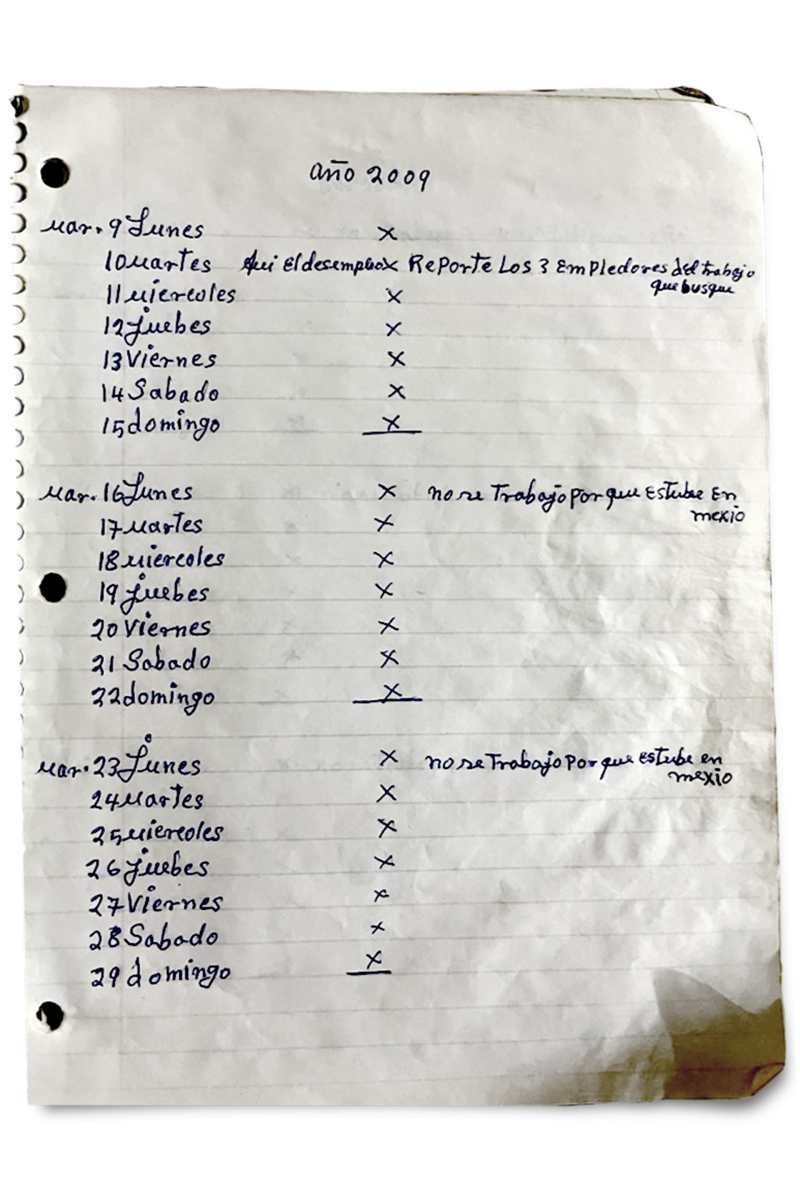 año 2009
Mar. 9 Lunes x
10 Martes Aui El desempleo x Reporte Los 3 Empledores del trabajo
que busque
11 Miercoles x
12 Juebes x
13 Viernes x
14 Sabado x
15 domingo x
Mar. 16 Lunes x no se Trabajo Por que Estube En
mexio
17 Martes x
18 Miercoles x
19 Juebes x
20 Viernes x
21 Sabado x
22 domingo x
Mar. 23 Lunes x no se Trabajo Por que Estube en
mexio
24 Martes x
25 Miercoles x
26 Juebes x
27 Viernes x
28 Sabado x
29 domingo x